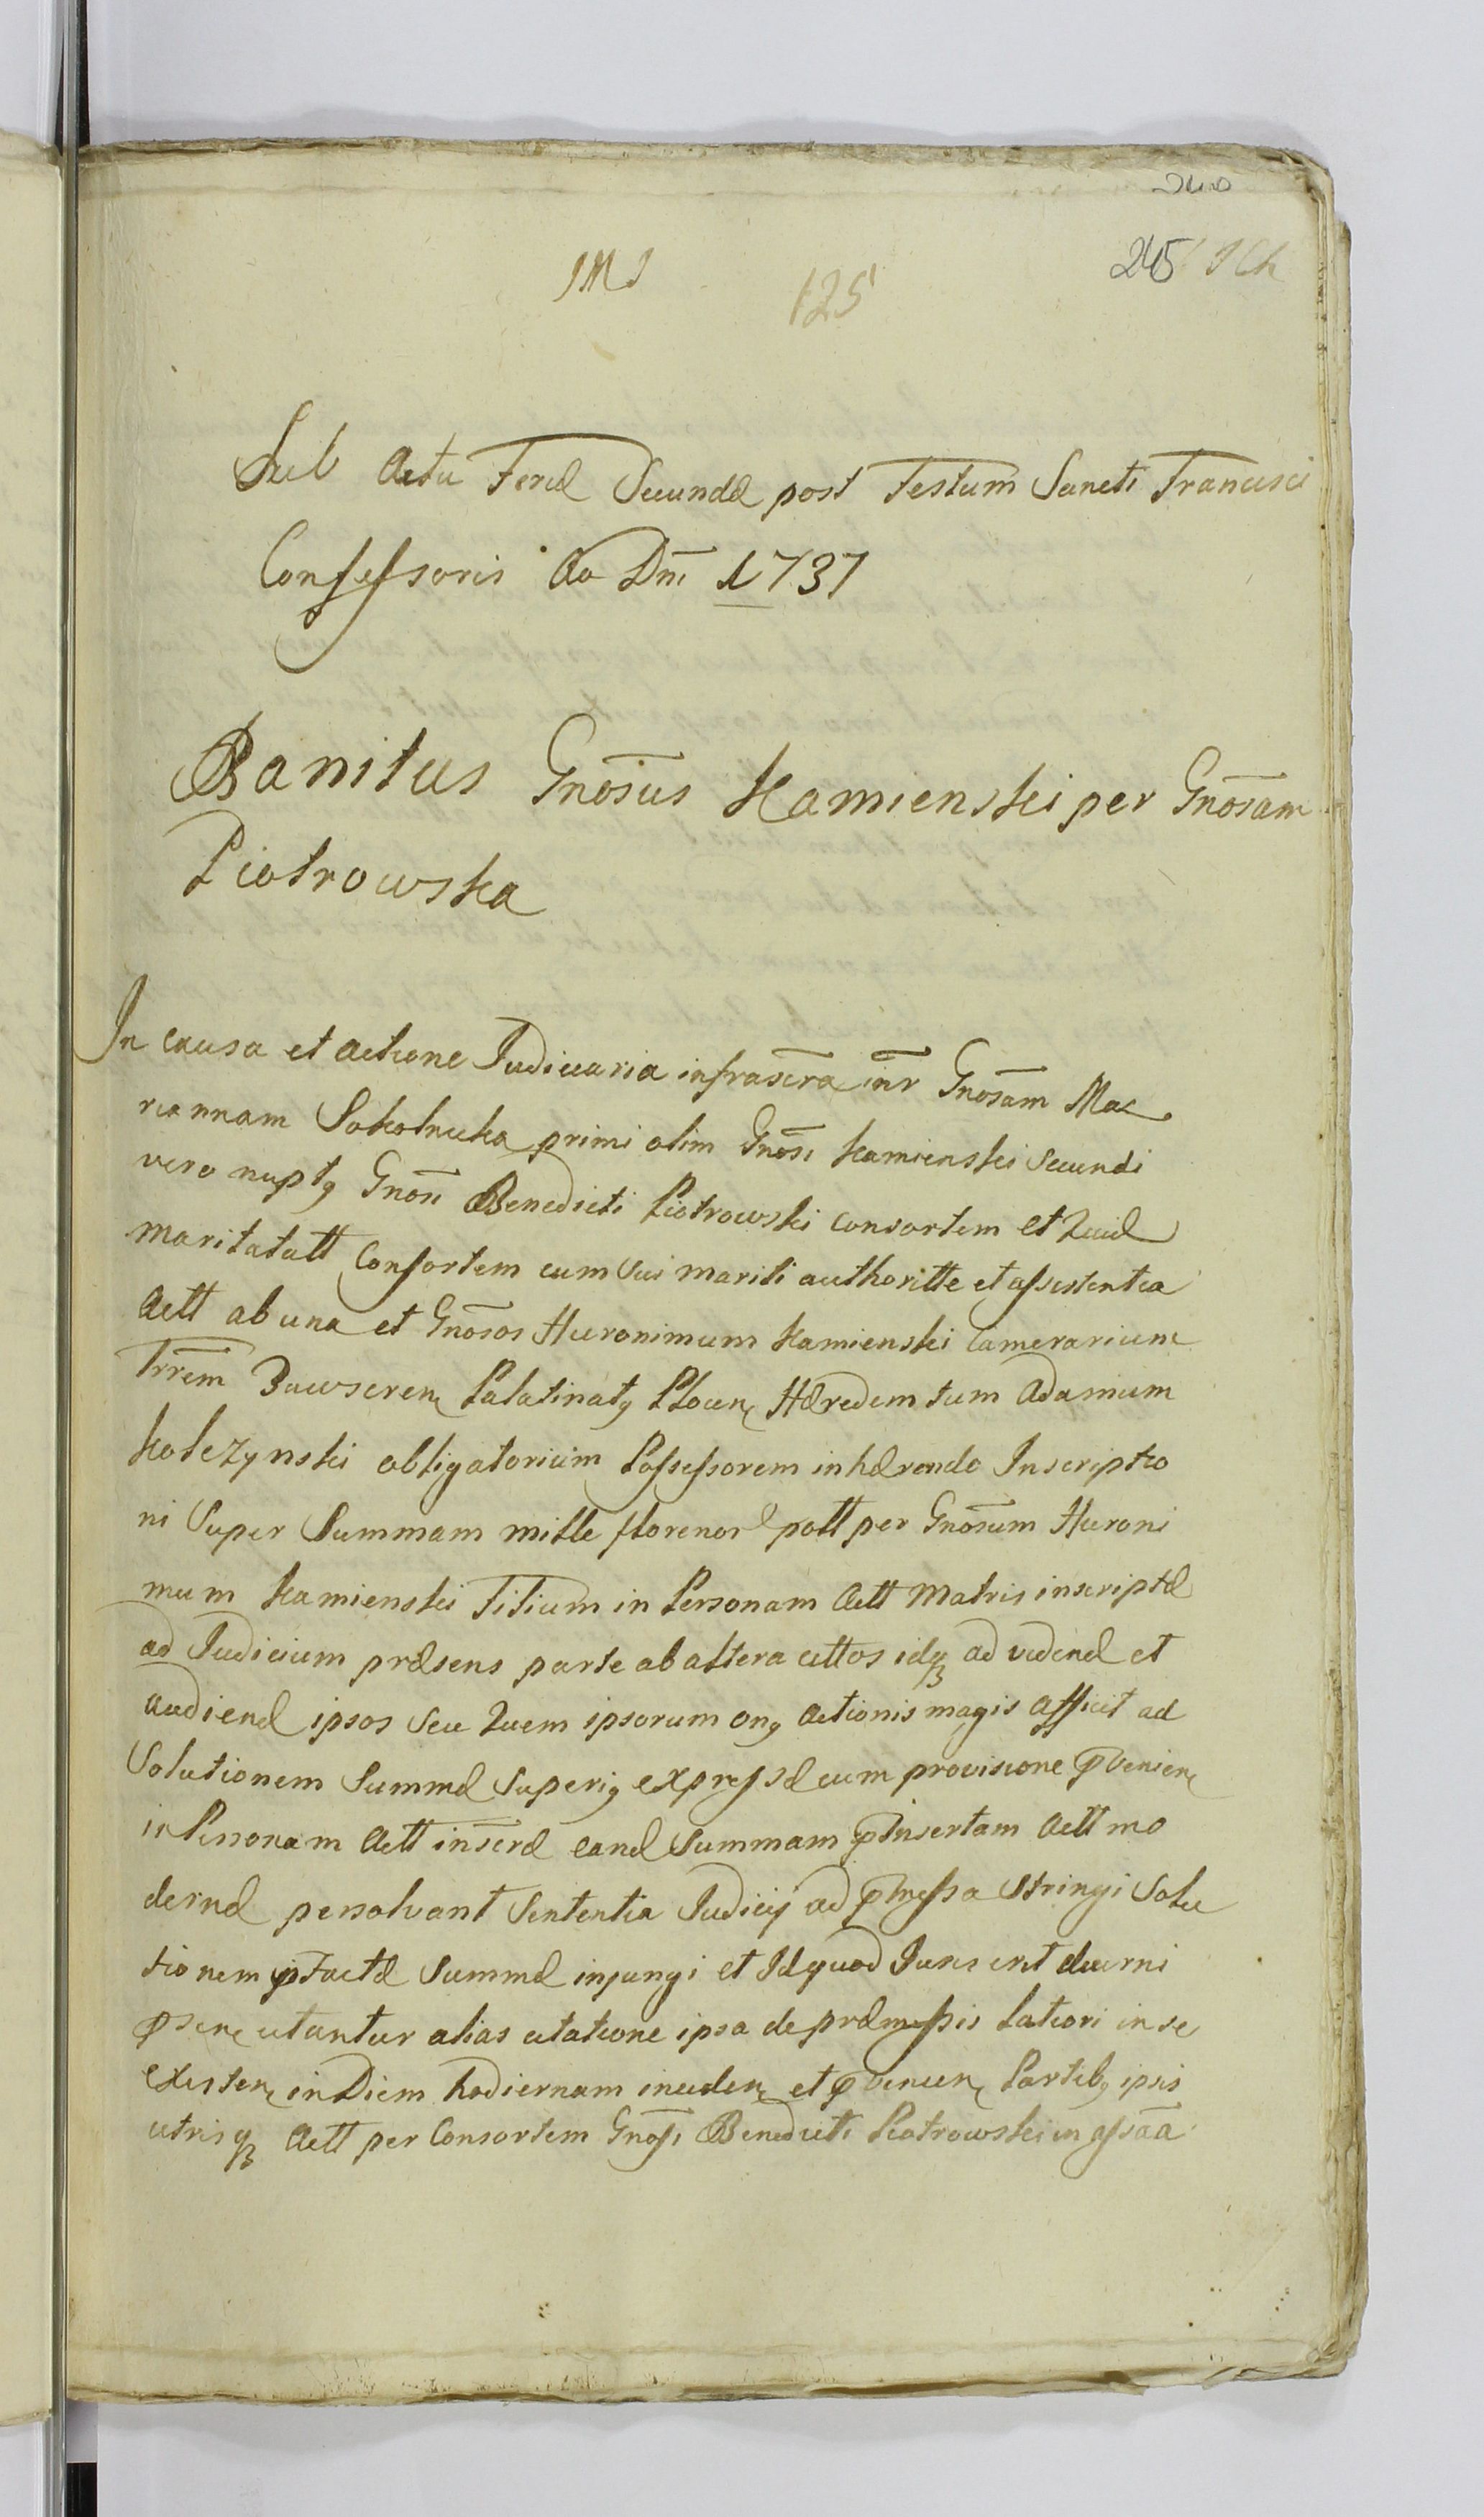 240
IMI 125 245
Sub Actu Feriæ Secundæ post Festum Sancti Francisci
Confessoris Ao Dni 1737
Banitus Gnosus Kamienski per Gnosam
Piotrowska
In causa et actione Judiciaria infrascra intr Gnosam Mar
riannam Sokolnicka primi olim Gnosi Kamienski Secundi
vero nuptq Gnosi Benedicti Piotrowski consortem et
maritatatt Consortem cum sui mariti authoritte et assistentia
Actt ab una et Gnosos Hieronimum Kamienski Camerarium
Trrem Zawscren Palatinatq Plocen Hæredem tum Adamum
Kolczynski obligatorium Possessorem inhærendo Inscriptio
ni Super Summam mille florenor pott per Gnosum Hieroni
mum Kamienski Titium in Personam Actt Matris inscriptæ
ad Judicium præsens parte ab altera cittos idq ad vidend et
audiend ipsos seu quem ipsorum onq actionis magis afficit ad
Solutionem Summæ Superiq expressæ cum provisione pvenien
in Personam Actt inscræ eand Summam Actt mo
dernæ persolvant Sententia Judicij ad stringi Solu
tionem pfactæ Summæ injungi et Id quod Juris erit decerni
citantur alias citatione ipsa de præmissis latiori in se
existen in Diem hodiernam inciden et pvenien Partibq ipsis
utrisq Actt per Consortem Gnosi Benedicti Piotrowski in assaa